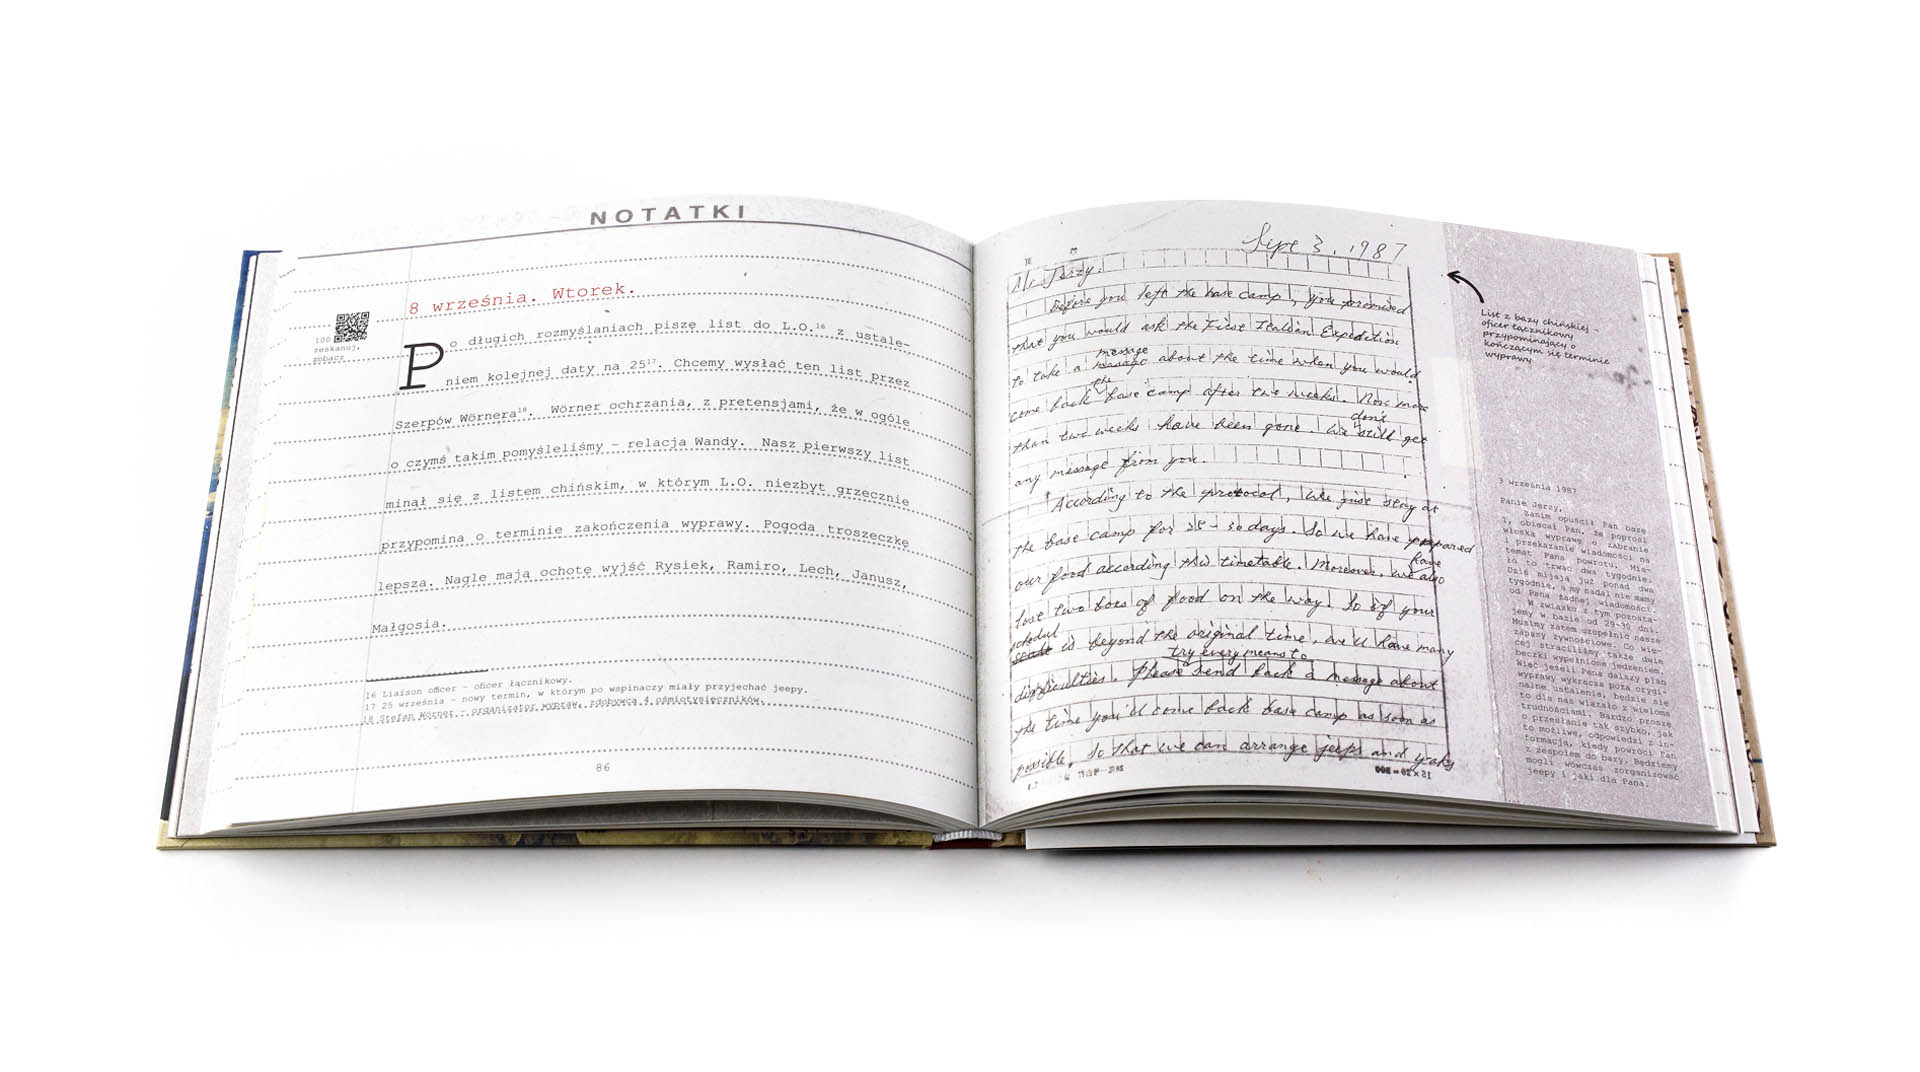 NOTATKI
100
zeskanuj,
zobacz
8 września. Wtorek.
Po długich rozmyślaniach piszę list do L.O.16 z ustale-
niem kolejnej daty na 2517. Chcemy wysłać ten list przez
Szerpów Wörnera18. Wörner ochrzania, z pretensjami, że w ogóle
o czymś takim pomyśleliśmy – relacja Wandy. Nasz pierwszy list
minął się z listem chińskim, w którym L.O. niezbyt grzecznie
przypomina o terminie zakończenia wyprawy. Pogoda troszeczkę
lepsza. Nagle mają ochotę wyjść Rysiek, Ramiro, Lech, Janusz,
Małgosia.
16 Liaison officer – oficer łącznikowy.
17 25 września – nowy termin, w którym po wspinaczy miały przyjechać jeepy.
18 Stefan Wörner – organizator wypraw, zdobywca 4 ośmiotysięczników.
86
Sipe 3, 1987
Mr Jerzy.
Before you left the base camp, you promised
that you would ask the First Italian Expedition
message
to take a message about the time when you would
the
come back base camp after two weeks. Now more
don't
than two weeks have been gone. We still get
any message from you.
According to the protocol, we just stay at
the base camp for 30 days. So we have prepared
have
our food according this timetable. Moreover, we also
lost two boxs of food on the way. So if your
schedul
is beyond the original time, we'll have many
try every means to
difficulties. Please send back a message about
the time you'll come back base camp as soon as
possible, so that we can arrange jeeps and yaks
15×20=300
List z bazy chińskiej –
oficer łącznikowy
przypominający o
kończącym się terminie
wyprawy.
3 września 1987
Panie Jerzy,
zanim opuścił Pan bazę
, obiecał Pan, że poprosi
włoską wyprawę o zabranie
i przekazanie wiadomości na
temat Pana powrotu. Mia-
ło to trwać dwa tygodnie.
Dziś mijają już ponad dwa
tygodnie, a my nadal nie mamy
od Pana żadnej wiadomości.
W związku z tym pozosta-
jemy w bazie od 29-30 dni.
Musimy zatem uzupełnić nasze
zapasy żywnościowe. Co wię-
cej straciliśmy także dwie
beczki wypełnione jedzeniem.
Więc jeżeli Pana dalszy plan
wyprawy wykracza poza orygi-
nalne ustalenia, będzie się
to dla nas wiązało z wieloma
trudnościami. Bardzo proszę
o przesłanie tak szybko, jak
to możliwe, odpowiedzi z in-
formacją, kiedy powróci Pan
z zespołem do bazy. Będziemy
mogli wówczas zorganizować
jeepy i jaki dla Pana.